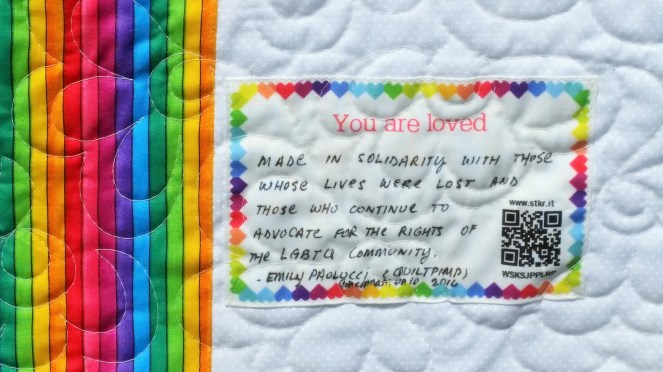 You are loved
MADE IN SOLIDARITY WITH THOSE
WHOSE LIVES WERE LOST AND
THOSE WHO CONTINUE TO
ADVOCATE FOR THE RIGHTS OF
THE LGBTQ COMMUNITY.
- EMILY PAOLUCCI (QUILTPIMP)
Cincinnati, OHIO 2016
www.stkr.it